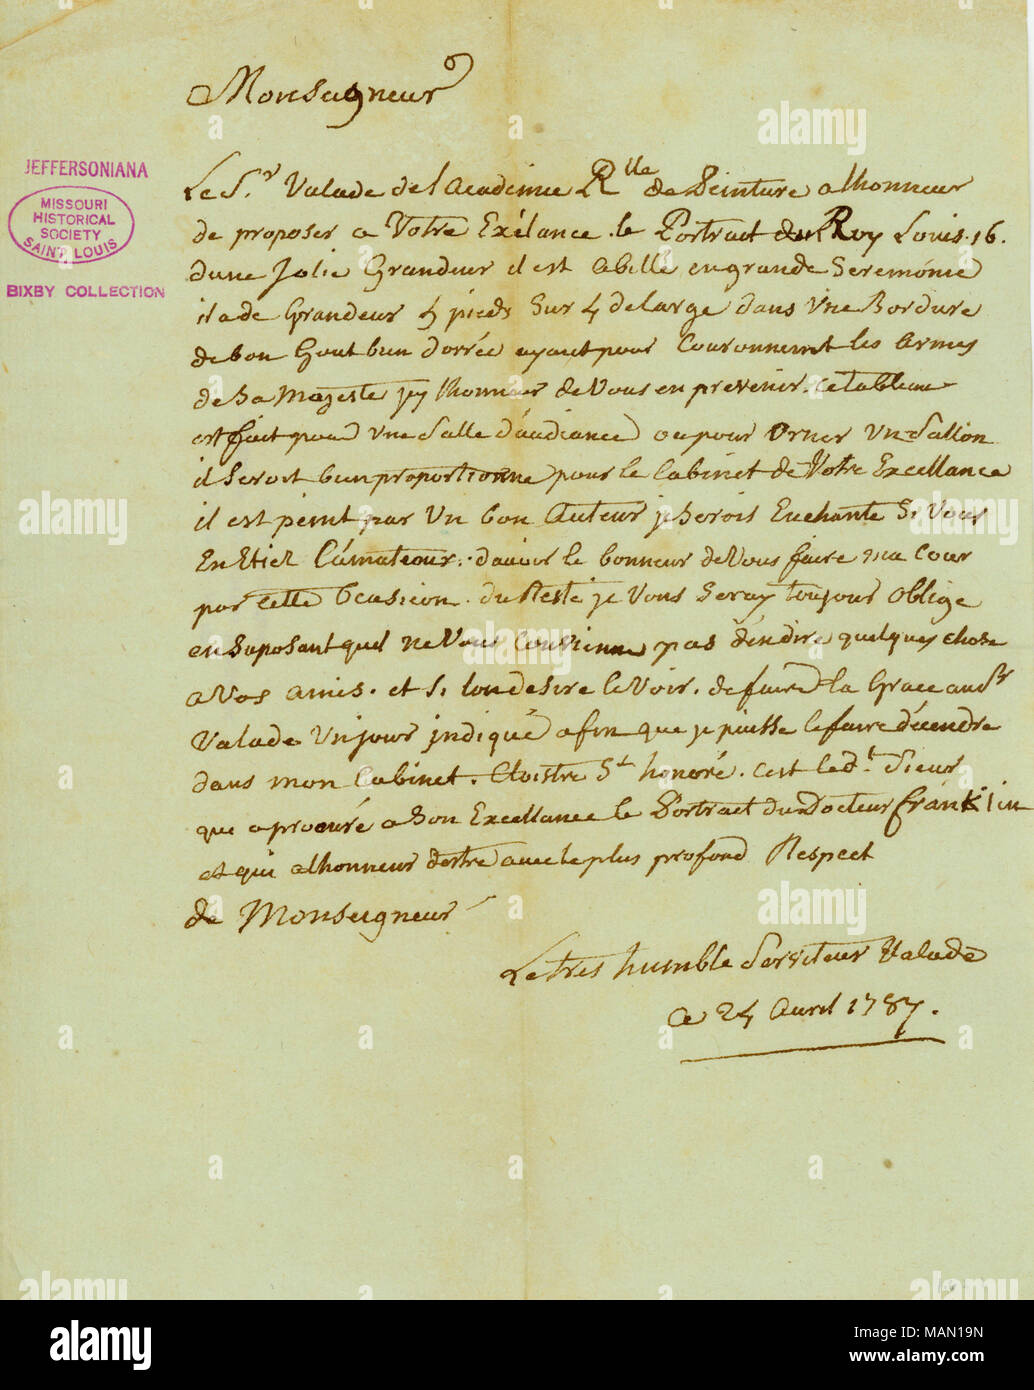 Monseigneur
JEFFERSONIANA
MISSOURI
HISTORICAL
SOCIETY
SAINT LOUIS
BIXBY COLLECTION
Le S.r Valade de l academie Rlle de Peinture a lhonneur
de proposer a Votre Exélance le Portrait du Roy Louis. 16.
dune Jolie Grandeur il est abillé en grande Seremónie
il a de Grandeur 5 pieds Sur 4 de large dans Vne Bordure
de bon Gout bien dorrée ayant pour Couronnement les armes
de Sa Majeste jey lhonneur de Vous en prevenir. ce tableau
est fait pour Vne Salle d'audiance ou pour Orner Vn Sallon
il Seroit bien proportionne pour le Cabinet de Votre Excellance
il est peint par Vn bon Auteur je Serois Enchante Si Vous
En Etiez L'amateur. davoir le bonneur de Vous faire ma Cour
par Cette Ocasieon. du Reste je Vous Seray toujour Oblige
en Suposant quel ne Vous Convienne pas d'en dire quelques chose
a Vos amis. et Si lon desire le Voir. de faire la Grace au Sr
Valade Un jour jndiqué afin que je puisse le faire décendre
dans mon Cabinet. Cloistre St honoré. cest le dt. Sieur
que a procuré a Son Excellance le Portrait du Docteur franklin
et qui a lhonneur destre avec le plus profond Respect
de Monseigneur
Le tres humble Serviteur Valade
Ce 24 Avril 1787.
alamy
Image ID: MAN19N
www.alamy.com